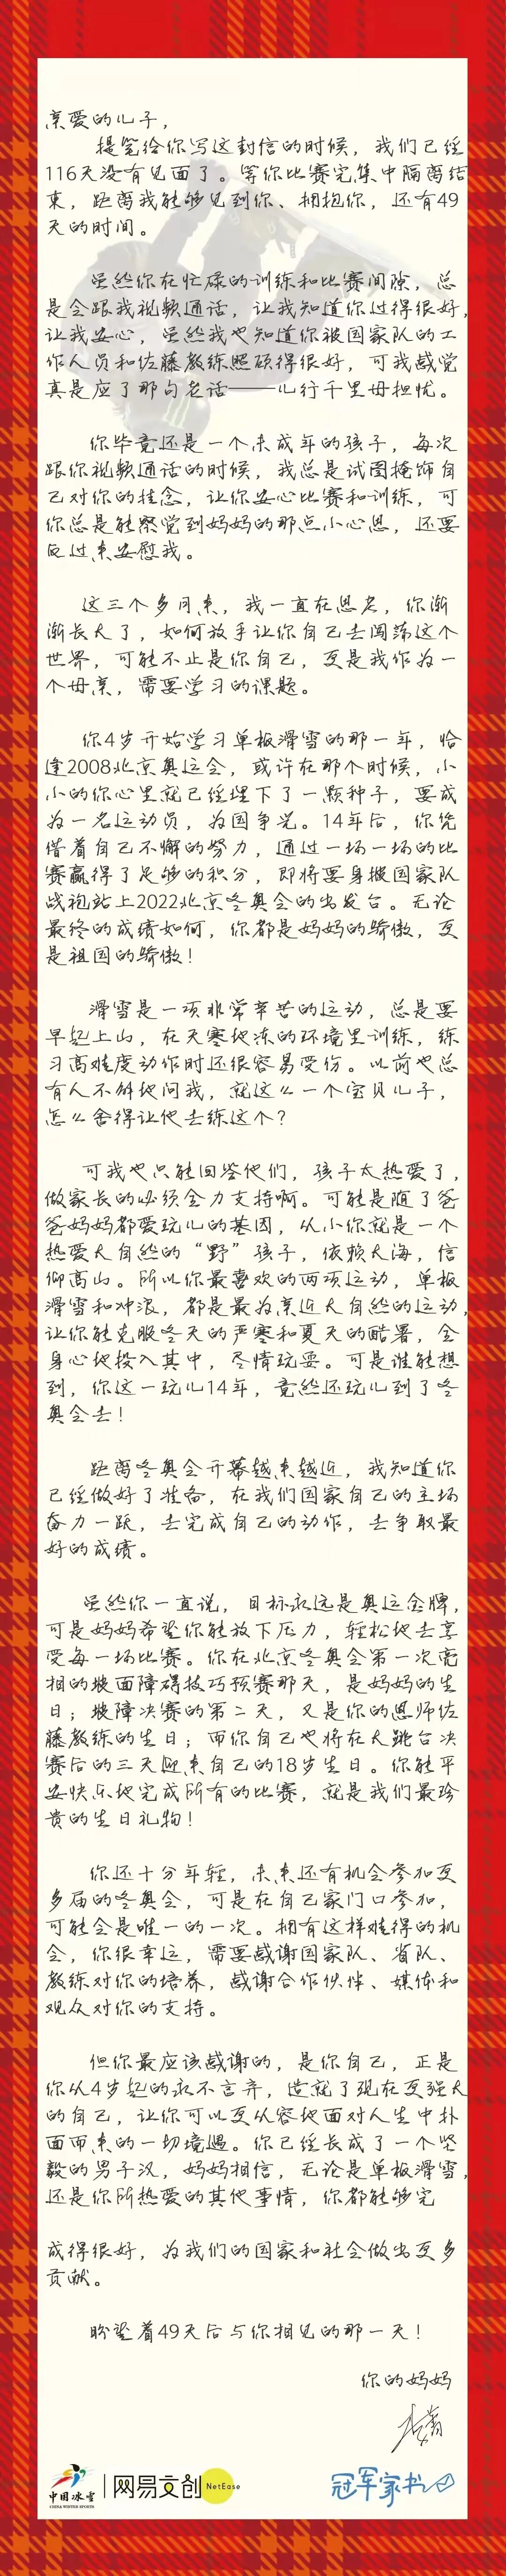 亲爱的儿子，
提笔给你写这封信的时候，我们已经
116天没有见面了。等你比赛完集中隔离结
束，距离我能够见到你、拥抱你，还有49
天的时间。
虽然你在忙碌的训练和比赛间隙，总
是会跟我视频通话，让我知道你过得很好，
让我安心，虽然我也知道你被国家队的工
作人员和佐藤教练照顾得很好，可我感觉
真是应了那句老话——儿行千里母担忧。
你毕竟还是一个未成年的孩子，每次
跟你视频通话的时候，我总是试图掩饰自
己对你的挂念，让你安心比赛和训练，可
你总是能察觉到妈妈的那点小心思，还要
反过来安慰我。
这三个多月来，我一直在思考，你渐
渐长大了，如何放手让你自己去闯荡这个
世界，可能不止是你自己，更是我作为一
个母亲，需要学习的课题。
你4岁开始学习单板滑雪的那一年，恰
逢2008北京奥运会，或许在那个时候，小
小的你心里就已经埋下了一颗种子，要成
为一名运动员，为国争光。14年后，你凭
借着自己不懈的努力，通过一场一场的比
赛赢得了足够的积分，即将要身披国家队
战袍站上2022北京冬奥会的出发台。无论
最终的成绩如何，你都是妈妈的骄傲，更
是祖国的骄傲！
滑雪是一项非常辛苦的运动，总是要
早起上山，在天寒地冻的环境里训练，练
习高难度动作时还很容易受伤。以前也总
有人不解地问我，就这么一个宝贝儿子，
怎么舍得让他去练这个？
可我也只能回答他们，孩子太热爱了，
做家长的必须全力支持啊。可能是随了爸
爸妈妈都爱玩儿的基因，从小你就是一个
热爱大自然的“野”孩子，依赖大海，信
仰高山。所以你最喜欢的两项运动，单板
滑雪和冲浪，都是最为亲近大自然的运动，
让你能克服冬天的严寒和夏天的酷暑，全
身心地投入其中，尽情玩耍。可是谁能想
到，你这一玩儿14年，竟然还玩儿到了冬
奥会去！
距离冬奥会开幕越来越近，我知道你
已经做好了准备，在我们国家自己的主场
奋力一跃，去完成自己的动作，去争取最
好的成绩。
虽然你一直说，目标永远是奥运金牌，
可是妈妈希望你能放下压力，轻松地去享
受每一场比赛。你在北京冬奥会第一次亮
相的坡面障碍技巧预赛那天，是妈妈的生
日；坡障决赛的第二天，又是你的恩师佐
藤教练的生日；而你自己也将在大跳台决
赛后的三天迎来自己的18岁生日。你能平
安快乐地完成所有的比赛，就是我们最珍
贵的生日礼物！
你还十分年轻，未来还有机会参加更
多届的冬奥会，可是在自己家门口参加，
可能会是唯一的一次。拥有这样难得的机
会，你很幸运，需要感谢国家队、省队、
教练对你的培养，感谢合作伙伴、媒体和
观众对你的支持。
但你最应该感谢的，是你自己，正是
你从4岁起的永不言弃，造就了现在更强大
的自己，让你可以更从容地面对人生中扑
面而来的一切境遇。你已经长成了一个坚
毅的男子汉，妈妈相信，无论是单板滑雪，
还是你所热爱的其他事情，你都能够完
成得很好，为我们的国家和社会做出更多
贡献。
盼望着49天后与你相见的那一天！
你的妈妈
中国冰雪
CHINA WINTER SPORTS
网易文创 NetEase
冠军家书